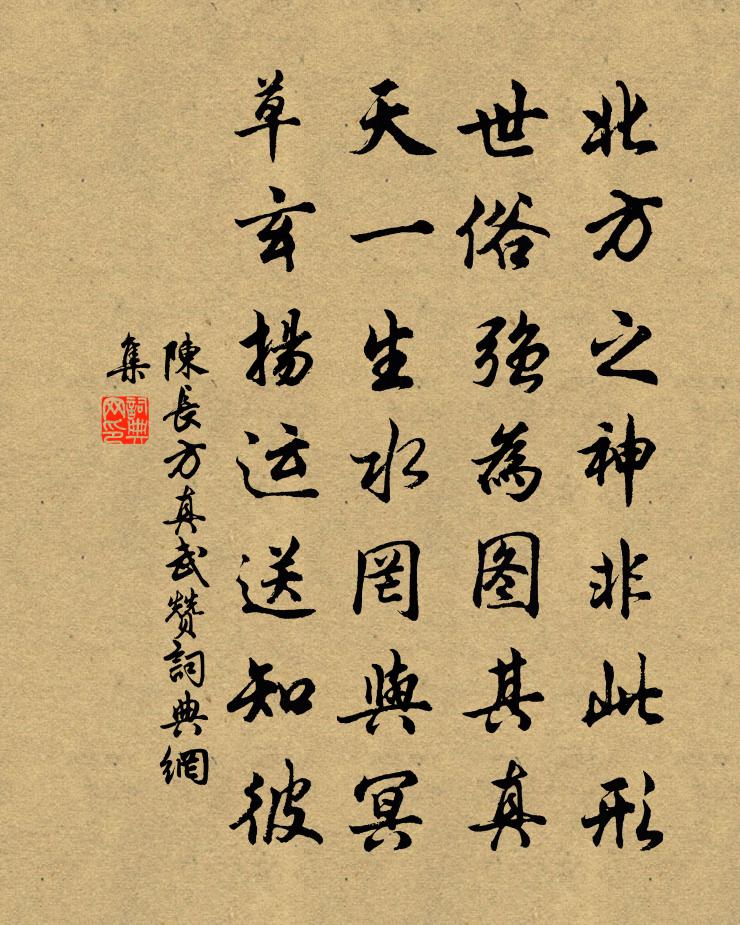 北方之神非此形
世俗強為图其真
天一生水罔與冥
草玄揚运送知彼
陳長方真武赞詞典網
集
詞典
网印